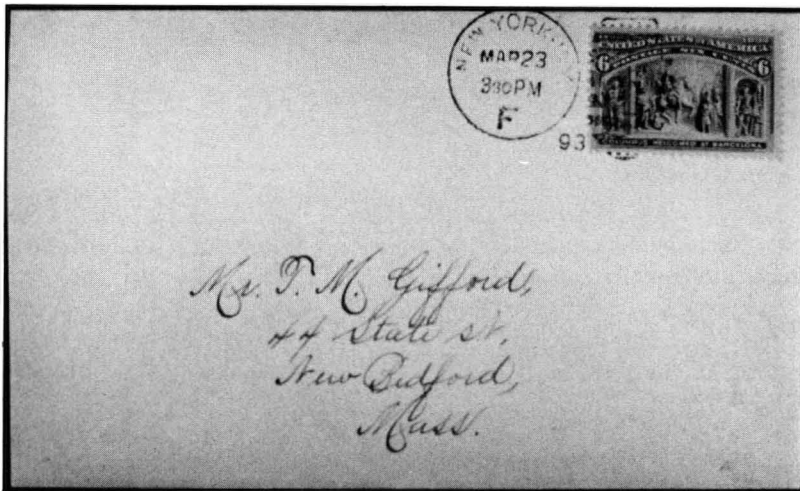 NEW YORK, N.Y.
MAR 23
330PM
F
93
UNITED STATES OF AMERICA
POSTAGE SIX CENTS
6 6
COLUMBUS WELCOMED AT BARCELONA
Mr. T. M. Gifford,
44 State st,
New Bedford,
Mass.